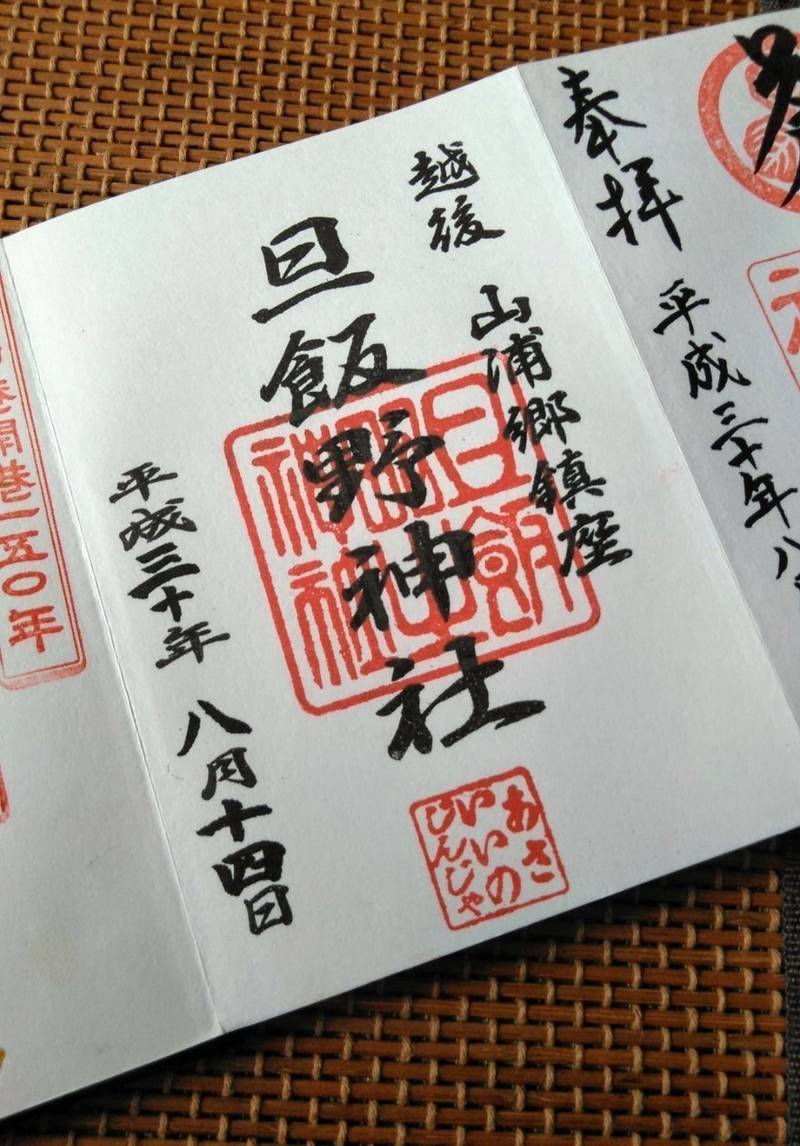 奉拝
平成三十年八
越後
山浦郷鎮座
旦飯野神社
平成三十年八月十四日
あさ
いいの
じんじゃ
開港一五〇年